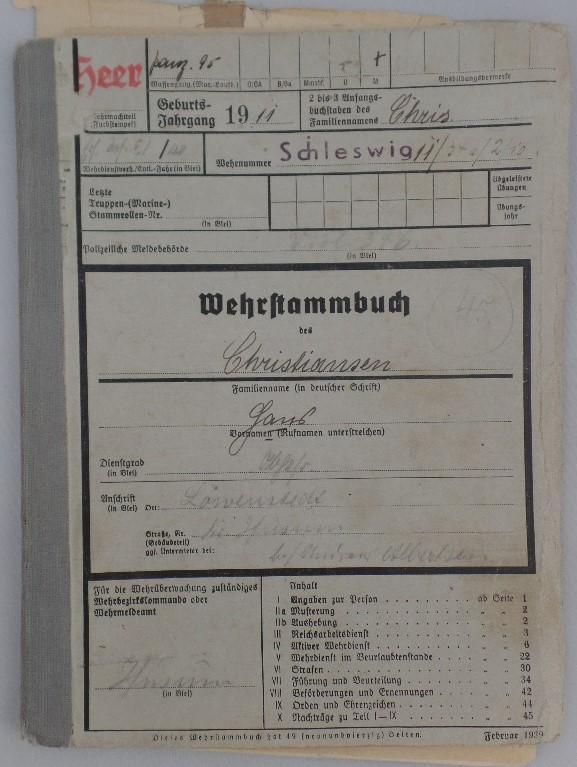 Heer
Panz. 95
+
Waffengattg. (Mar.-Laufb.)
O
Ausbildungsvermerke
Wehrmachtteil
(Farbstempel)
Geburts-
Jahrgang 1911
2 bis 3 Anfangs-
buchstaben des
Familiennamens Chris
Wehrdienstverh./Entl.-Jahr (in Blei)
Wehrnummer Schleswig 11/
Letzte
Truppen-(Marine-)
Stammrollen-Nr.
(in Blei)
Abgeleistete
Übungen
Übungs-
jahr
Polizeiliche Meldebehörde
(in Blei)
45
Wehrstammbuch
des
Christiansen
Familienname (in deutscher Schrift)
Hans
Vornamen (Rufnamen unterstreichen)
Dienstgrad
(in Blei)
Anschrift
(in Blei) Ort: Löwenstedt
Straße, Nr.
(Gebäudeteil)
ggf. Untermieter bei: Albertsen
Für die Wehrüberwachung zuständiges
Wehrbezirkskommando oder
Wehrmeldeamt
Husum
(in Blei)
Inhalt
I Angaben zur Person . . . ab Seite 1
IIa Musterung . . . „ „ 2
IIb Aushebung . . . „ „ 2
III Reichsarbeitsdienst . . . „ „ 3
IV Aktiver Wehrdienst . . . „ „ 6
V Wehrdienst im Beurlaubtenstande . . . „ „ 22
VI Strafen . . . „ „ 30
VII Führung und Beurteilung . . . „ „ 34
VIII Beförderungen und Ernennungen . . . „ „ 42
IX Orden und Ehrenzeichen . . . „ „ 44
X Nachträge zu Teil I—IX . . . „ „ 45
Dieses Wehrstammbuch hat 49 (neunundvierzig) Seiten.
Februar 1939